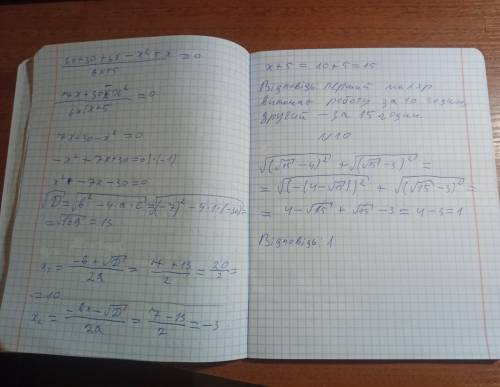 6x+30+6x-x²-5x / 6x+5 = 0
7x+30-x² / 6x(x+5 = 0
7x+30-x²=0
-x²+7x+30=0|·(-1)
x²-7x-30=0
√D=√b²-4·a·c=√(-7)²-4·1·(-30)=
=√169=13
x₁= -b+√D / 2a = 7+13 / 2 = 20 / 2 =
=10
x₂= -b-√D / 2a = 7-13 / 2 = -3
x+5=10+5=15
Відповідь: перший маляр
виконає роботу за 10 годин,
другий - за 15 годин.
№10
√(√15-4)² + √(√15-3)² =
= √(-(4-√15))² + √(√15-3)² =
= 4-√15+√15-3=4-3=1
Відповідь: 1